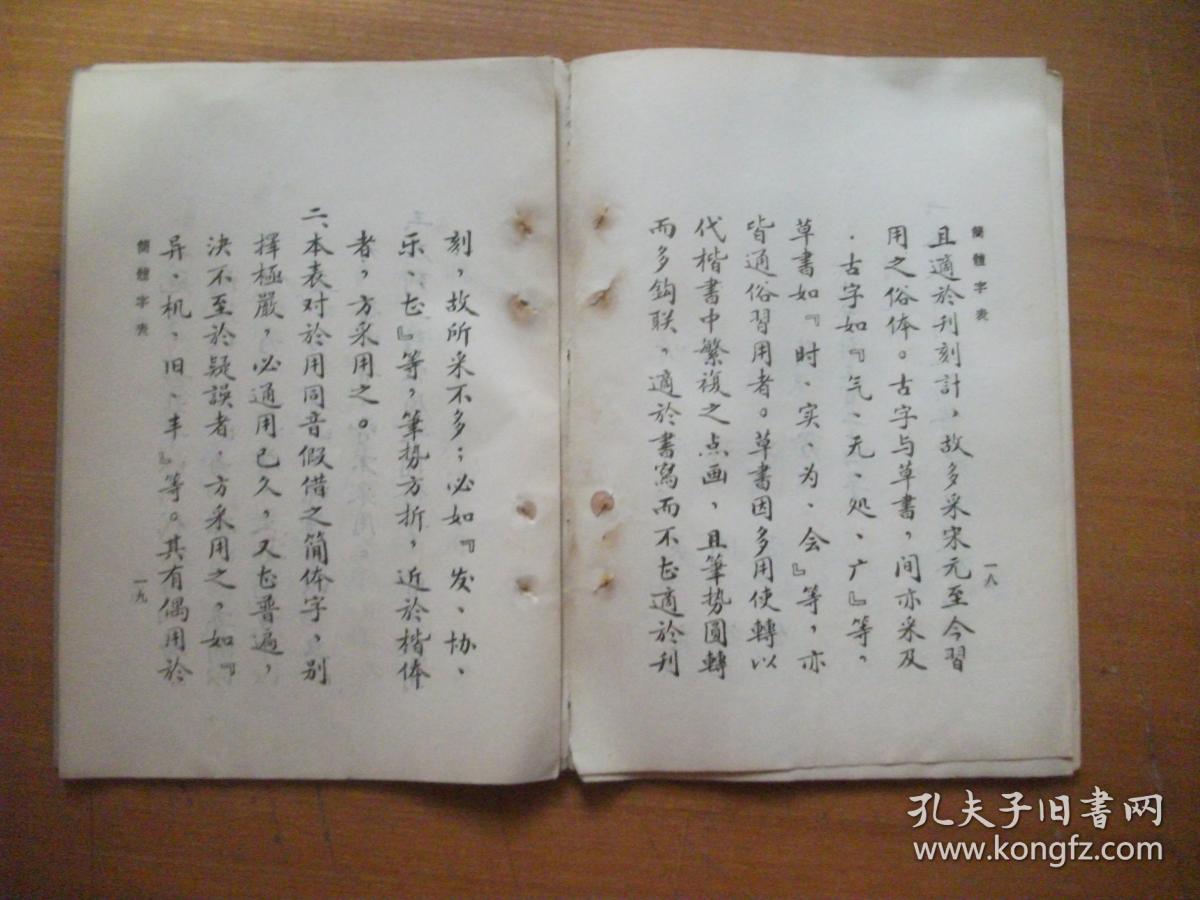 簡體字表 一八
且適於刊刻計，故多采宋元至今習
用之俗体。古字与草書，间亦采及
．古字如『气、无、处、广』等，
草書如『时、实、为、会』等，亦
皆通俗習用者。草書因多用使轉以
代楷書中繁複之点画，且筆势圓轉
而多鈎联，適於書寫而不甚適於刊
刻，故所采不多；必如『发、协、
乐、甚』等，筆势方折，近於楷体
者，方采用之。
二、本表对於用同音假借之简体字，别
擇極嚴，必通用已久，又甚普遍，
決不至於疑誤者，方采用之，如『
异、机、旧、丰』等。其有偶用於
簡體字表 一九
孔夫子旧書网
www.kongfz.com